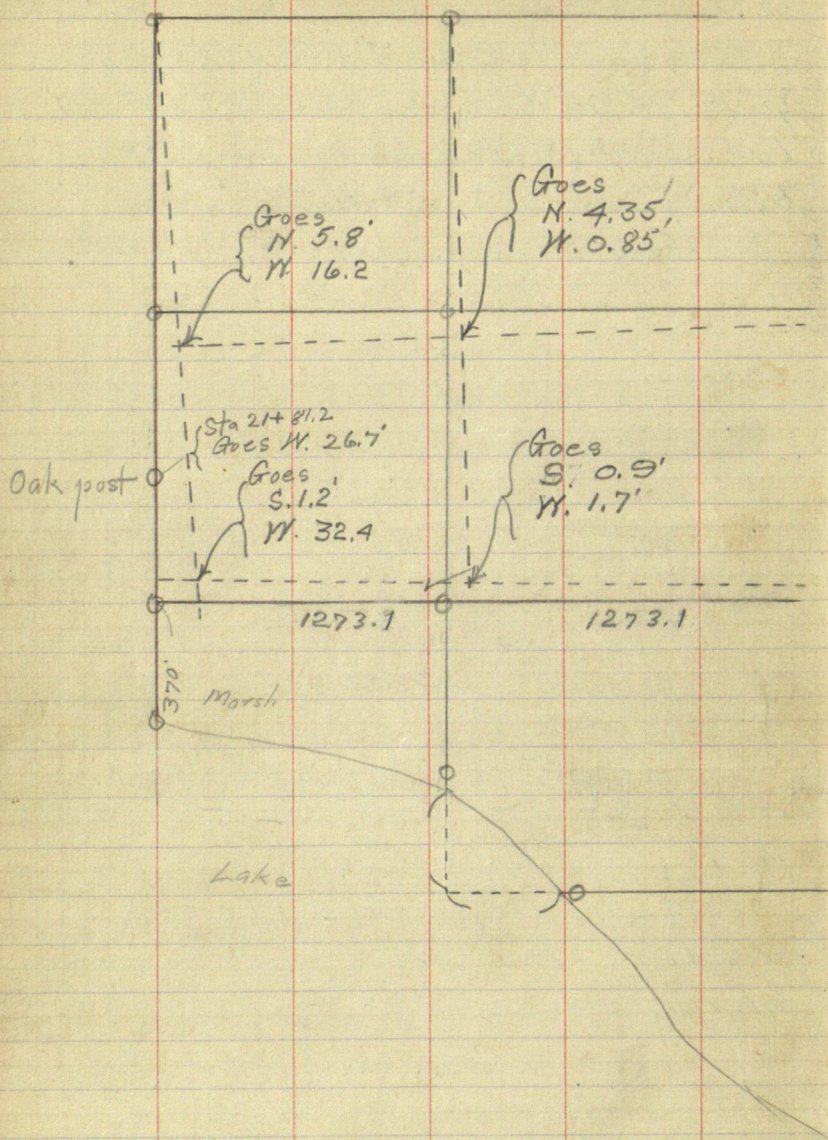 Goes
N. 5.8'
W 16.2
Goes
N. 4.35'
W. 0.85'
Sta 21+81.2
Goes W. 26.7'
Oak post
Goes
S. 1.2'
W. 32.4
Goes
S. 0.9'
W. 1.7'
1273.1
1273.1
370'
Marsh
Lake